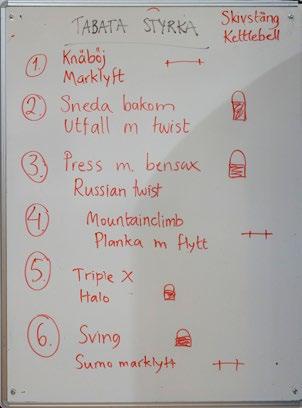 TABATA STYRKA
Skivstång
Kettlebell
1. Knäböj
Marklyft
2. Sneda bakom
Utfall m twist
3. Press m. bensax
Russian twist
4. Mountainclimb
Planka m flytt
5. Triple X
Halo
6. Sving
Sumo marklyft